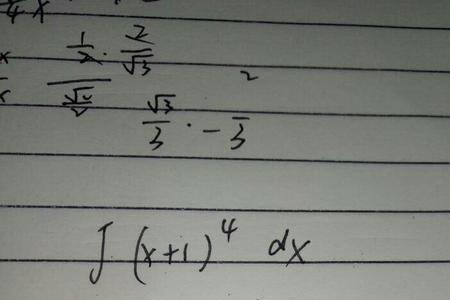 4 x
1/x · 2/√3
√2/2
2
√3/3 · - 3
∫ (x+1)^4 dx